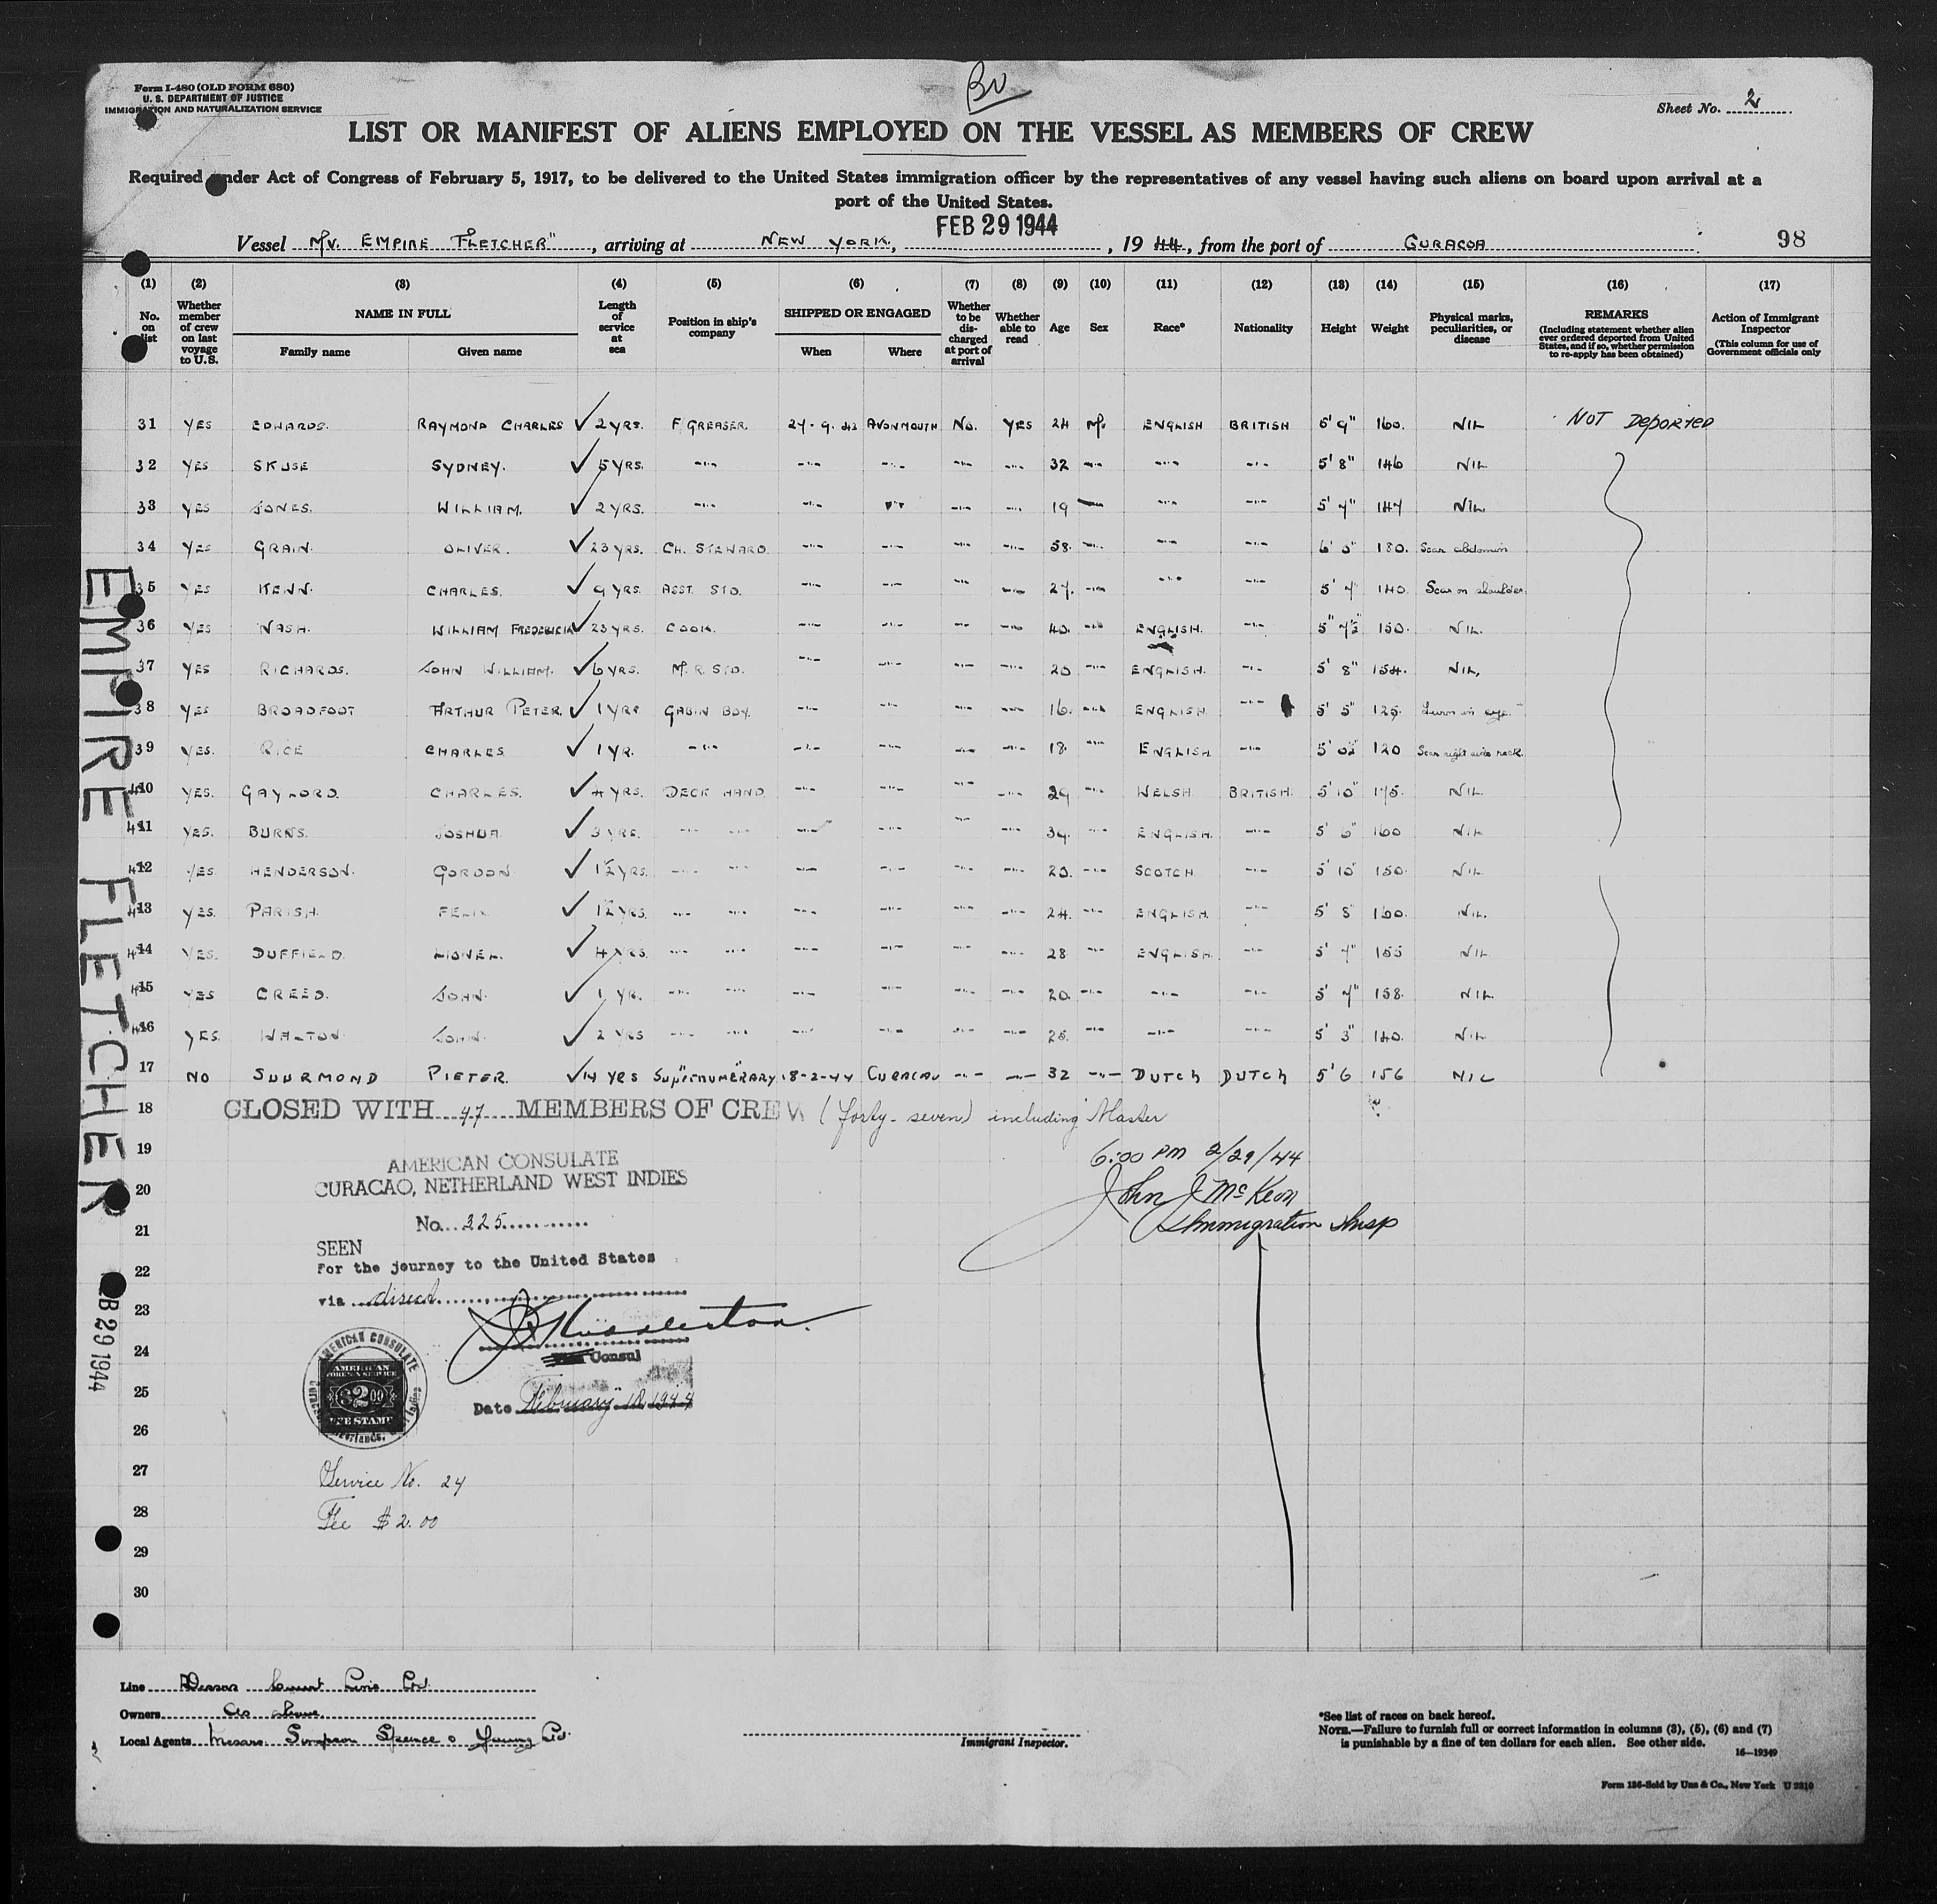 Form I-480 (OLD FORM 680)
U. S. DEPARTMENT OF JUSTICE
IMMIGRATION AND NATURALIZATION SERVICE
Sheet No. 2
LIST OR MANIFEST OF ALIENS EMPLOYED ON THE VESSEL AS MEMBERS OF CREW
Required under Act of Congress of February 5, 1917, to be delivered to the United States immigration officer by the representatives of any vessel having such aliens on board upon arrival at a
port of the United States.
FEB 29 1944
Vessel M/V. EMPIRE FLETCHER", arriving at NEW YORK, , 19 44, from the port of CURACOA 98
(1) (2) (3) (4) (5) (6) (7) (8) (9) (10) (11) (12) (13) (14) (15) (16) (17)
No. on list Whether member of crew on last voyage to U.S. NAME IN FULL Family name Given name Length of service at sea Position in ship's company SHIPPED OR ENGAGED When Where Whether to be discharged at port of arrival Whether able to read Age Sex Race* Nationality Height Weight Physical marks, peculiarities, or disease REMARKS (Including statement whether alien ever ordered deported from United States, and if so, whether permission to re-apply has been obtained) Action of Immigrant Inspector (This column for use of Government officials only
31 YES EDWARDS. RAYMOND CHARLES ✓ 2 YRS. F GREASER. 27.9.43 AVONMOUTH No. YES 24 M. ENGLISH BRITISH 5' 9" 160. NIL NOT DEPORTED
32 YES SKUSE SYDNEY. ✓ 5 YRS. -"- -"- -"- -"- -"- 32 -"- -"- -"- 5' 8" 146 NIL
33 YES JONES. WILLIAM. ✓ 2 YRS. -"- -"- " -"- -"- 19 — -"- -"- 5' 7" 147 NIL
34 YES GRAIN. OLIVER. ✓ 23 YRS. CH. STEWARD. -"- -"- -"- -"- 58. -"- -"- -"- 6' 0" 180. Scar abdomin
35 YES KENN. CHARLES. ✓ 9 YRS. ASST. STD. -"- -"- -"- -"- 27. -"- -"- -"- 5' 7" 140. Scar on shoulder.
36 YES NASH. WILLIAM FREDERICK ✓ 23 YRS. COOK. -"- -"- -"- -"- 40. -"- ENGLISH. -"- 5" 7½ 150. NIL.
37 YES RICHARDS. JOHN WILLIAM. ✓ 6 YRS. M.R. STD. -"- -"- -"- -"- 20 -"- ENGLISH. -"- 5' 8" 154. NIL.
38 YES BROADFOOT ARTHUR PETER. ✓ 1 YRS CABIN BOY. -"- -"- -"- -"- 16. -"- ENGLISH. -"- 5' 5" 125. in eye.
39 YES. RICE CHARLES. ✓ 1 YR. -"- -"- -"- -"- -"- 18. -"- ENGLISH. -"- 5' 120 Scar right side neck.
40 YES. GAYLORD. CHARLES. ✓ 4 YRS. DECK HAND. -"- -"- -"- -"- 29 -"- WELSH BRITISH. 5' 10" 175. NIL
41 YES. BURNS. JOSHUA ✓ 3 YRS. -"- -"- -"- -"- -"- 39. -"- ENGLISH. -"- 5' 6" 160 NIL
42 YES HENDERSON. GORDON. ✓ 1½ YRS. -"- -"- -"- -"- -"- 20. -"- SCOTCH. -"- 5' 10" 150. NIL
43 YES. PARISH. FELIX ✓ 1½ YRS. -"- -"- -"- -"- -"- 24. -"- ENGLISH. -"- 5' 8" 160. NIL.
44 YES. DUFFIELD. LIONEL. ✓ 4 YRS. -"- -"- -"- -"- -"- 28 -"- ENGLISH. -"- 5' 7" 155 NIL
45 YES CREED. JOHN. ✓ 1 YR. -"- -"- -"- -"- -"- 20. -"- -"- -"- 5' 7" 158. NIL.
46 YES. WALTON. JOHN. ✓ 2 YRS -"- -"- -"- -"- -"- -"- -"- -"- 5' 3" 140. NIL
17 NO SUURMOND PIETER. ✓ 14 YES SUPERNUMERARY 18-2-44 CURACAU -"- -"- 32 -"- DUTCH DUTCH 5'6 156 NIL
18 CLOSED WITH 47 MEMBERS OF CREW (forty-seven) including Master
19
6:00 PM 2/29/44
AMERICAN CONSULATE
CURACAO, NETHERLAND WEST INDIES
20
John J McKeon
Immigration Insp
No. 325
21
SEEN
For the journey to the United States
22
via direct
23
24
Consul
25
Date February 18 1944
AMERICAN CONSULATE
AMERICAN
FOREIGN SERVICE
$2.00
FEE STAMP
26
27
Service No. 24
28
Fee $ 2.00
29
30
EMPIRE FLETCHER
29 1944
Line
Owners As above
Local Agents Messrs. Simpson Spence & Young Ltd.
Immigrant Inspector.
*See list of races on back hereof.
NOTE.—Failure to furnish full or correct information in columns (3), (5), (6) and (7)
is punishable by a fine of ten dollars for each alien. See other side.
16—19349
Form 136-Sold by Unz & Co., New York U 2210